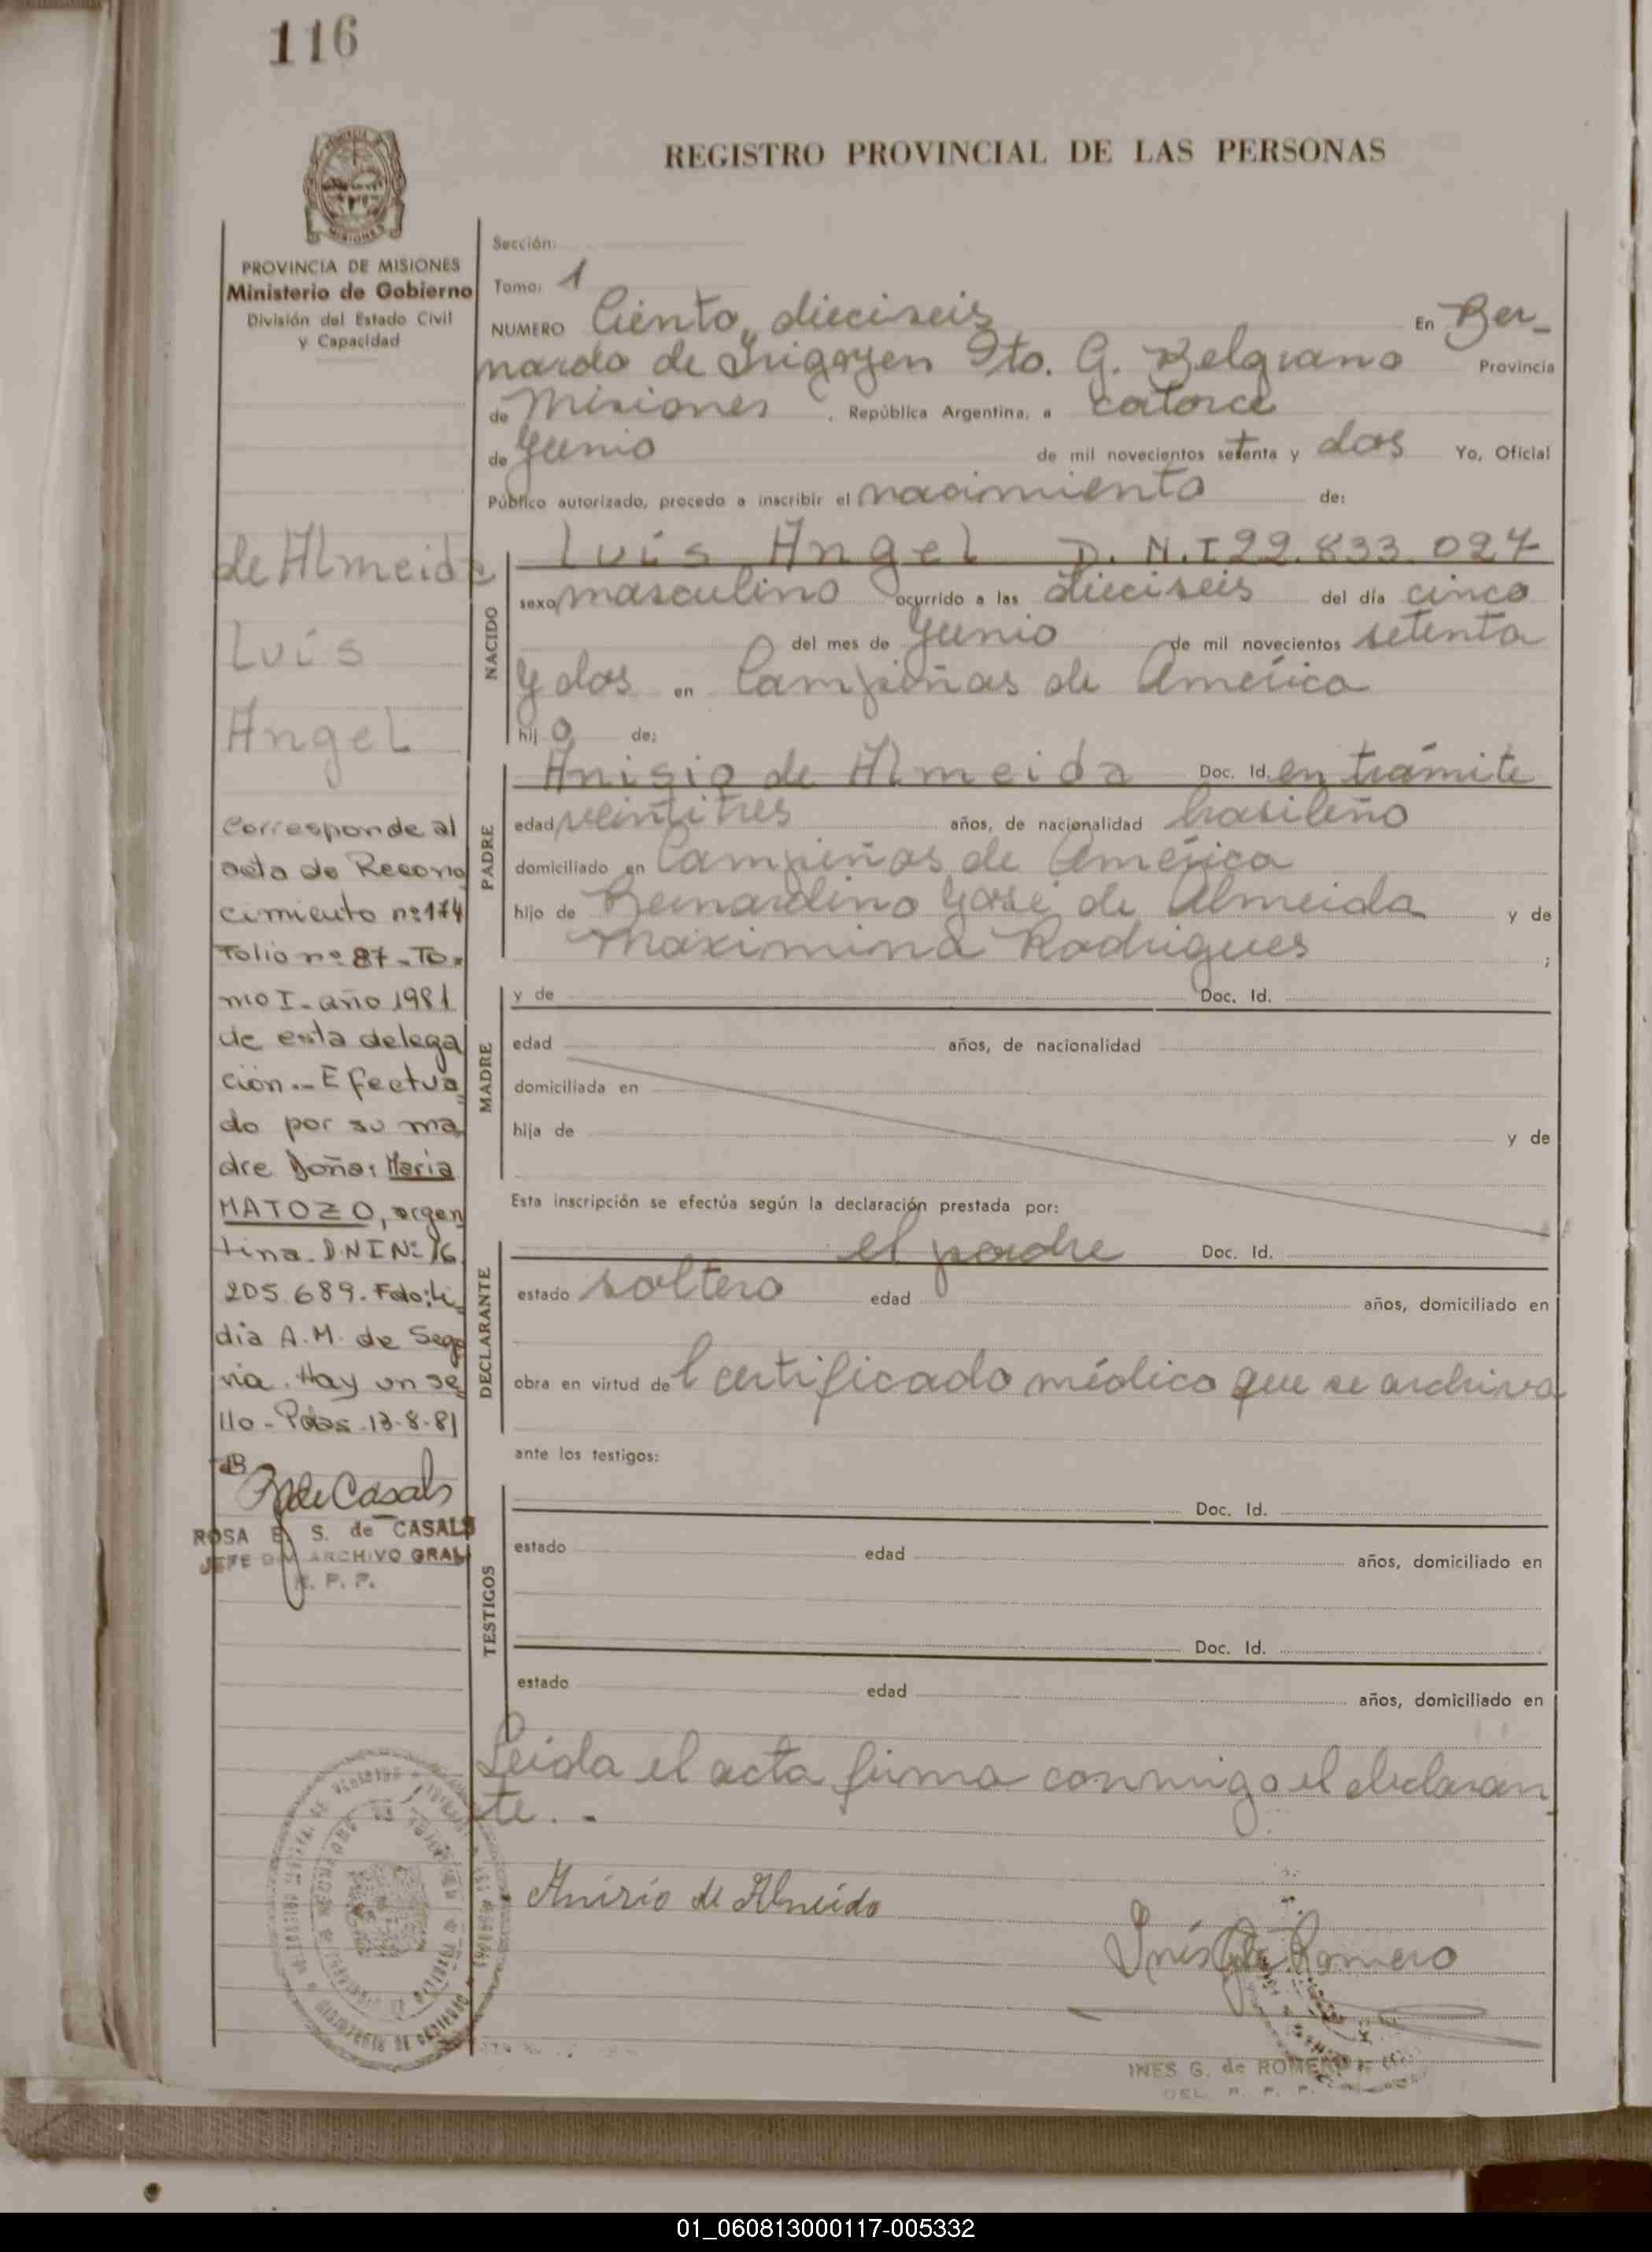 116
REGISTRO PROVINCIAL DE LAS PERSONAS
MISIONES
PROVINCIA DE MISIONES
Ministerio de Gobierno
División del Estado Civil
y Capacidad
Sección:
Tomo: 1
NUMERO Ciento dieciseis En Ber-
nardo de Irigoyen Dto. G. Belgrano Provincia
de Misiones , República Argentina, a catorce
de Junio de mil novecientos setenta y dos Yo, Oficial
Público autorizado, procedo a inscribir el nacimiento de:
de Almeida
Luis
Angel
Corresponde al
acta de Recono
cimiento nº 174
Folio nº 87 - To-
mo I - año 1981
de esta delega
ción.- Efectua
do por su ma
dre Doña: Maria
MATOZO, argen
tina. DNI Nº 16.
205.689. Fdo: Li
dia A.M. de Sego
via. Hay un se
llo - Pdas. 13-8-81
de Casals
ROSA E. S. de CASALS
JEFE DIV ARCHIVO GRAL
R. P. P.
NACIDO
Luis Angel D.N.I 22.833.027
sexo masculino ocurrido a las dieciseis del día cinco
del mes de Junio de mil novecientos setenta
y dos en Campiñas de América
hij o de:
PADRE
Anisio de Almeida Doc. Id. en trámite
edad veintitres años, de nacionalidad brasileño
domiciliado en Campiñas de América
hijo de Bernardino José de Almeida y de
Maximina Rodrigues ;
MADRE
y de Doc. Id.
edad años, de nacionalidad
domiciliada en
hija de y de
Esta inscripción se efectúa según la declaración prestada por:
DECLARANTE
el padre Doc. Id.
estado soltero edad años, domiciliado en
obra en virtud de l certificado médico que se archiva
ante los testigos:
TESTIGOS
Doc. Id.
estado edad años, domiciliado en
Doc. Id.
estado edad años, domiciliado en
Leida el acta firma conmigo el declaran
te. -
Anisio de Almeida
Inés G. de Romero
INES G. de ROMERO
DEL. R. P. P.
01_060813000117-005332